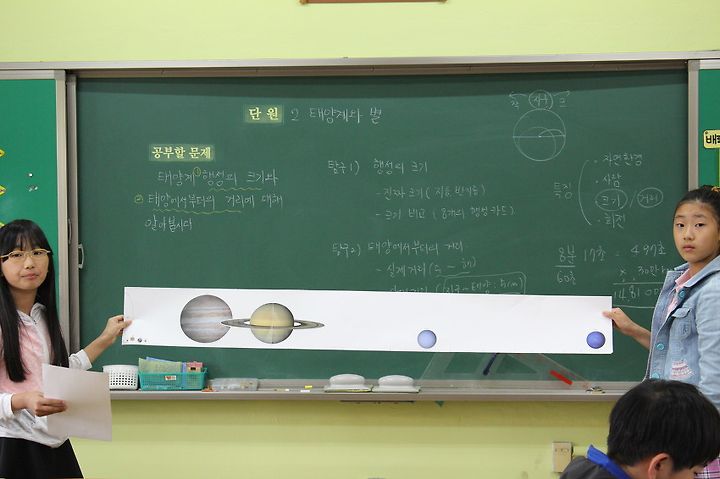 단원 2 태양계와 별
공부할 문제
태양계 ① 행성의 크기와
② 태양에서부터의 거리에 대해
알아봅시다
탐구1) 행성의 크기
- 진짜 크기(지름 반지름)
- 크기 비교(8개의 행성카드)
탐구2) 태양에서부터의 거리
- 실제거리
작 지구 크
특징
· 자연환경
· 사람
크기 / 거리
· 회전
8분 17초 = 497초
60초
x 30만
배